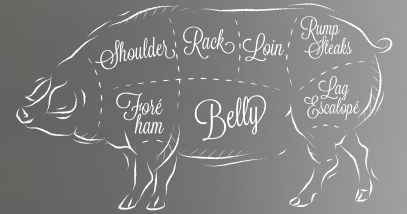 Shoulder
Rack
Loin
Rump
Steaks
Foré
ham
Belly
Lag
Escalopé